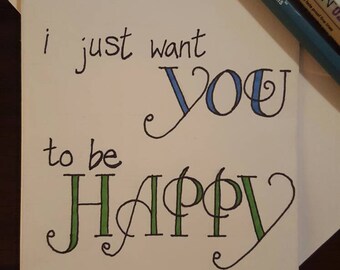 i just want
YOU
to be
HAPPY